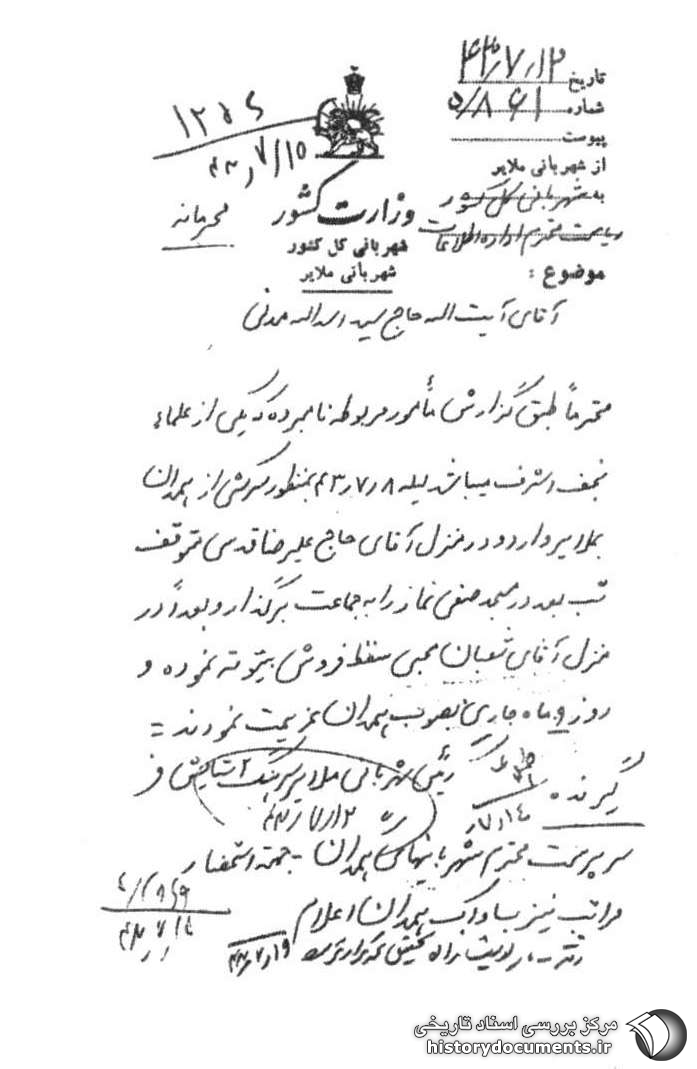 تاریخ ۴۳/۷/۱۲
شماره ۵/۸۶۱
پیوست
از شهربانی ملایر
به شهربانی کل کشور
ریاست محترم اداره اطلاعات
موضوع :
۴۳/۷/۱۵
محرمانه
وزارت کشور
شهربانی کل کشور
شهربانی ملایر
آقای آیت اله حاج سید اسداله مدنی
محترماً طبق گزارش مأمور مربوطه نامبرده که یکی از علماء
نجف اشرف میباشد لیله ۴۳/۷/۸ بمنظور سرکشی از همدان
بملایر وارد و در منزل آقای حاج علیرضا قدسی متوقف
شب بعد در مسجد صفی نماز را به جماعت برگذار و بعداً در
منزل آقای شعبان محبی سقط فروش بیتوته نموده و
روز ۹ ماه جاری بصوب همدان عزیمت نمودند =
رئیس شهربانی ملایر سرهنگ ۲ ستایش فر
۴۳/۷/۱۲
گیرنده
۷/۱۴
سرپرست محترم شهربانیهای همدان - جهت استحضار
مراتب نیز بساواک همدان اعلام
۴۳/۷/۱۹
مرکز بررسی اسناد تاریخی
historydocuments.ir